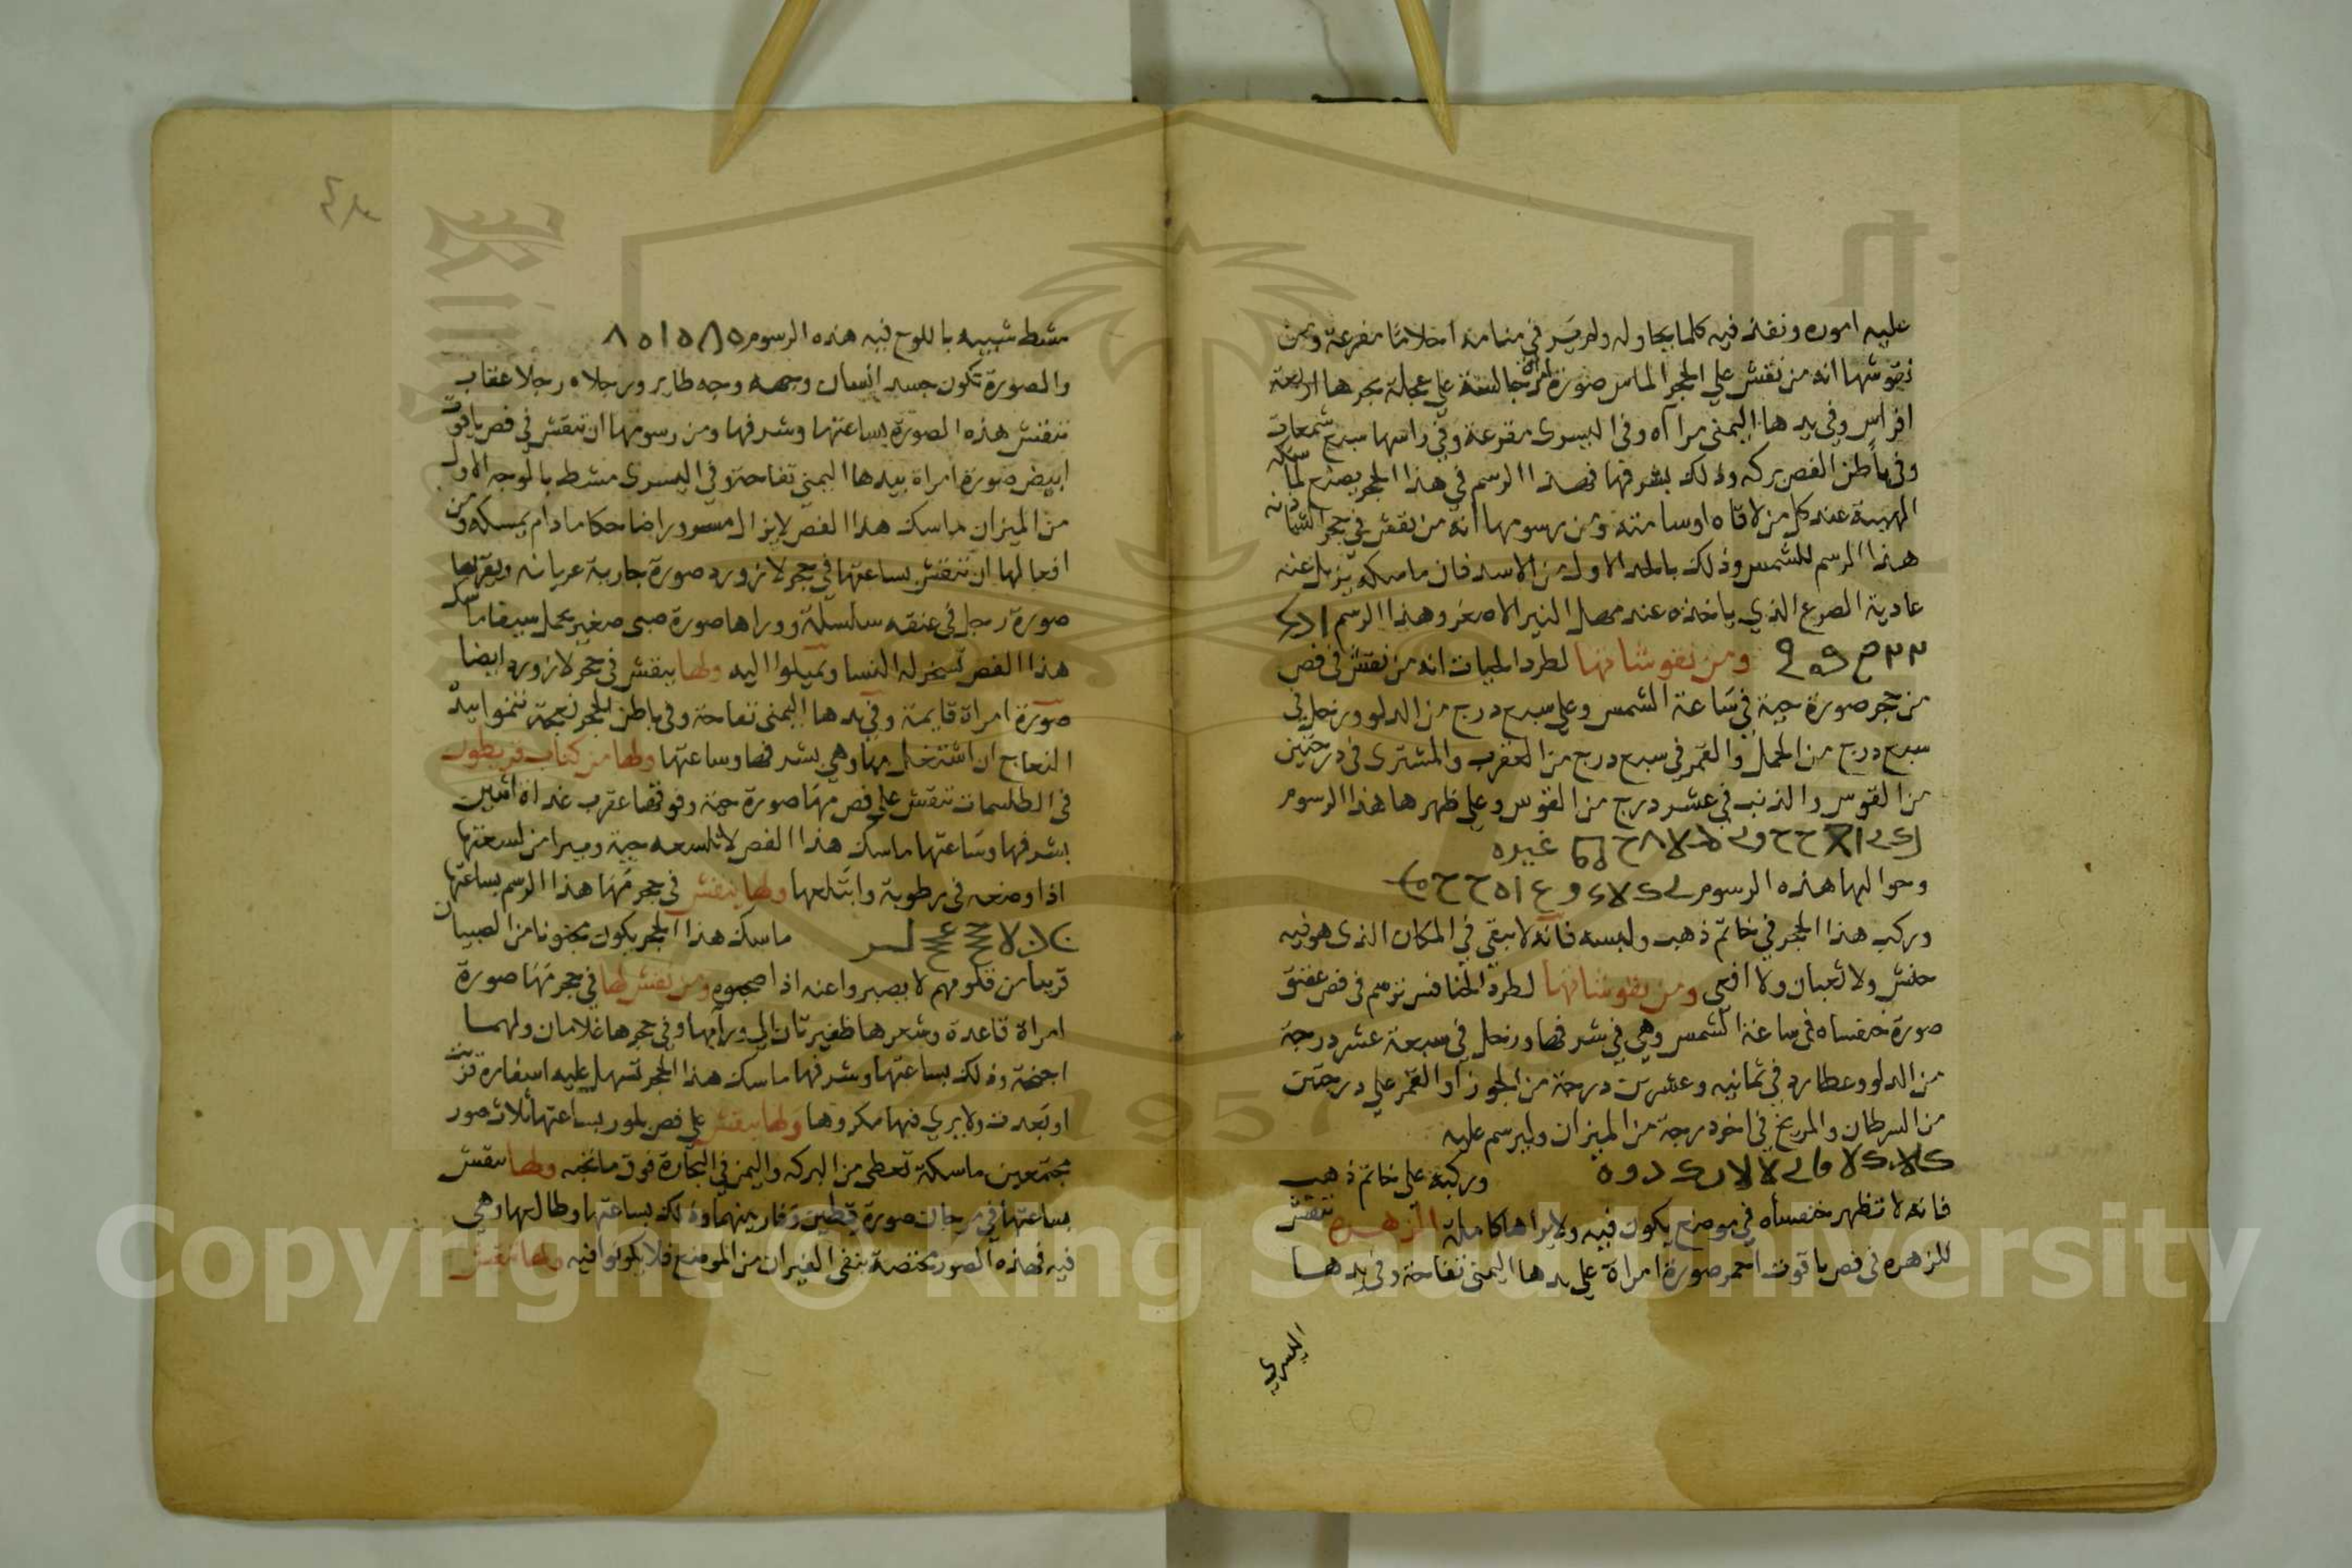 عليه اموره ونفذ فيه كلما يحاوله ولم ير في منامه احلاما مفزعة ومن
نقوشها انه من نقش علي الحجر الماس صورة امراة جالسة علي عجلة يجرها اربعة
افراس وفي يدها اليمني مراآه وفي اليسرى مقرعة وفي راسها سبع شمعات
وفي باطن الفص بركه وذلك بشرفها فهذا الرسم في هذا الحجر يصنع لماسكه
الهيبة عند كل من لاقاه او سامته ومن رسومها انه من نقش في حجر الشادنه
هذا الرسم للشمس وذلك بالحد الاول من الاسد فان ماسكه يزيل عنه
عادية الصرع الذي ياخذه عند مهل النير الاصغر وهذا الرسم
ومن نقوشاتها لطرد الحيات انه من نقش في فص
من حجر صورة حية في ساعة الشمس وعلي سبع درج من الدلو وزحل في
سبع درج من الحمل والقمر في سبع درج من العقرب والمشترى في درجتين
من القوس والذنب في عشر درج من القوس وعلي ظهرها هذا الرسوم
غيره
وحواليها هذه الرسوم
وركب هذا الحجر في خاتم ذهب ولبسه فانه لا يبقي في المكان الذى هو فيه
حنش ولا ثعبان ولا افعي ومن نقوشاتها لطرد الخنافس ترسم في فص عقيق
صورة خنفساه في ساعة الشمس وهي في شرفها وزحل في سبعة عشر درجة
من الدلو وعطارد في ثمانيه وعشرين درجة من الجوزآ والقمر علي درجتين
من السرطان والمريخ في اخر درجة من الميزان وليرسم عليه
وركبه علي خاتم ذهب
فانه لا تظهر خنفساه في موضع يكون فيه ولا يراها كاملة الزهره تنقش
للزهره في فص ياقوت احمر صورة امراة علي يدها اليمني تفاحة وفي يدها
اليسرى
مشط شبيه باللوح فيه هذه الرسوم
والصورة تكون جسد انسان ووجهه وجه طاير ورجلاه رجلا عقاب
تنقش هذه الصورة بساعتها وشرفها ومن رسومها ان تنقش في فص ياقوت
ابيض صورة امراة بيدها اليمني تفاحة وفي اليسرى مشط بالوجه الاول
من الميزان ماسك هذا الفص لايزال مسرورا ضاحكا مادام يمسكه ومن
افعالها ان تنقش بساعتها في حجر لازورد صورة جارية عريانه وبقربها
صورة رجل في عنقه سلسلة ووراها صورة صبى صغير يحمل سيفا ماسك
هذا الفص تسخر له النسا وتميلوا اليه ولها ينقش في حجر لازورد ايضا
صورة امراة قايمة وفي يدها اليمني تفاحة وفي باطن الحجر نعجة تنموا بيده
النعاج ان اشتغل بها وهي بشرفها وساعتها ولها من كتاب
في الطلسمات تنقش علي فص مها صورة حية وفوقها عقرب غداة اثنين
بشرفها وساعتها ماسك هذا الفص لا تلسعه حية ويبرا من لسعتها
اذا وضعه في رطوبة وابتلعها ولها ينقش في حجر مها هذا الرسم بساعتها
ماسك هذا الحجر يكون مجنونا من الصبيان
قريبا من قلوبهم لا يصبروا عنه اذا اصحبوه ومن نقش لها في حجر مها صورة
امراة قاعدة وشعرها ظفيرتان الي ورآيها وفي حجرها غلامان ولهما
اجنحة وذلك بساعتها وشرفها ماسك هذا الحجر تسهل عليه اسفاره قربت
او بعدت ولا يرى فيها مكروها ولها ينقش علي فص بلور بساعتها ثلاث صور
مجتمعين ماسكه تعطي من البركه واليمن في التجارة فوق ما تحبه ولها ينقش
بساعتها في مرجان صورة قطين وفار بينهما وذلك بساعتها وطالها وهي
فيه فهذه الصور مختصة بنفي الفيران من الموضع فلا يكونوا فيه ولها ينقش
Copyright © King Saud University
1957